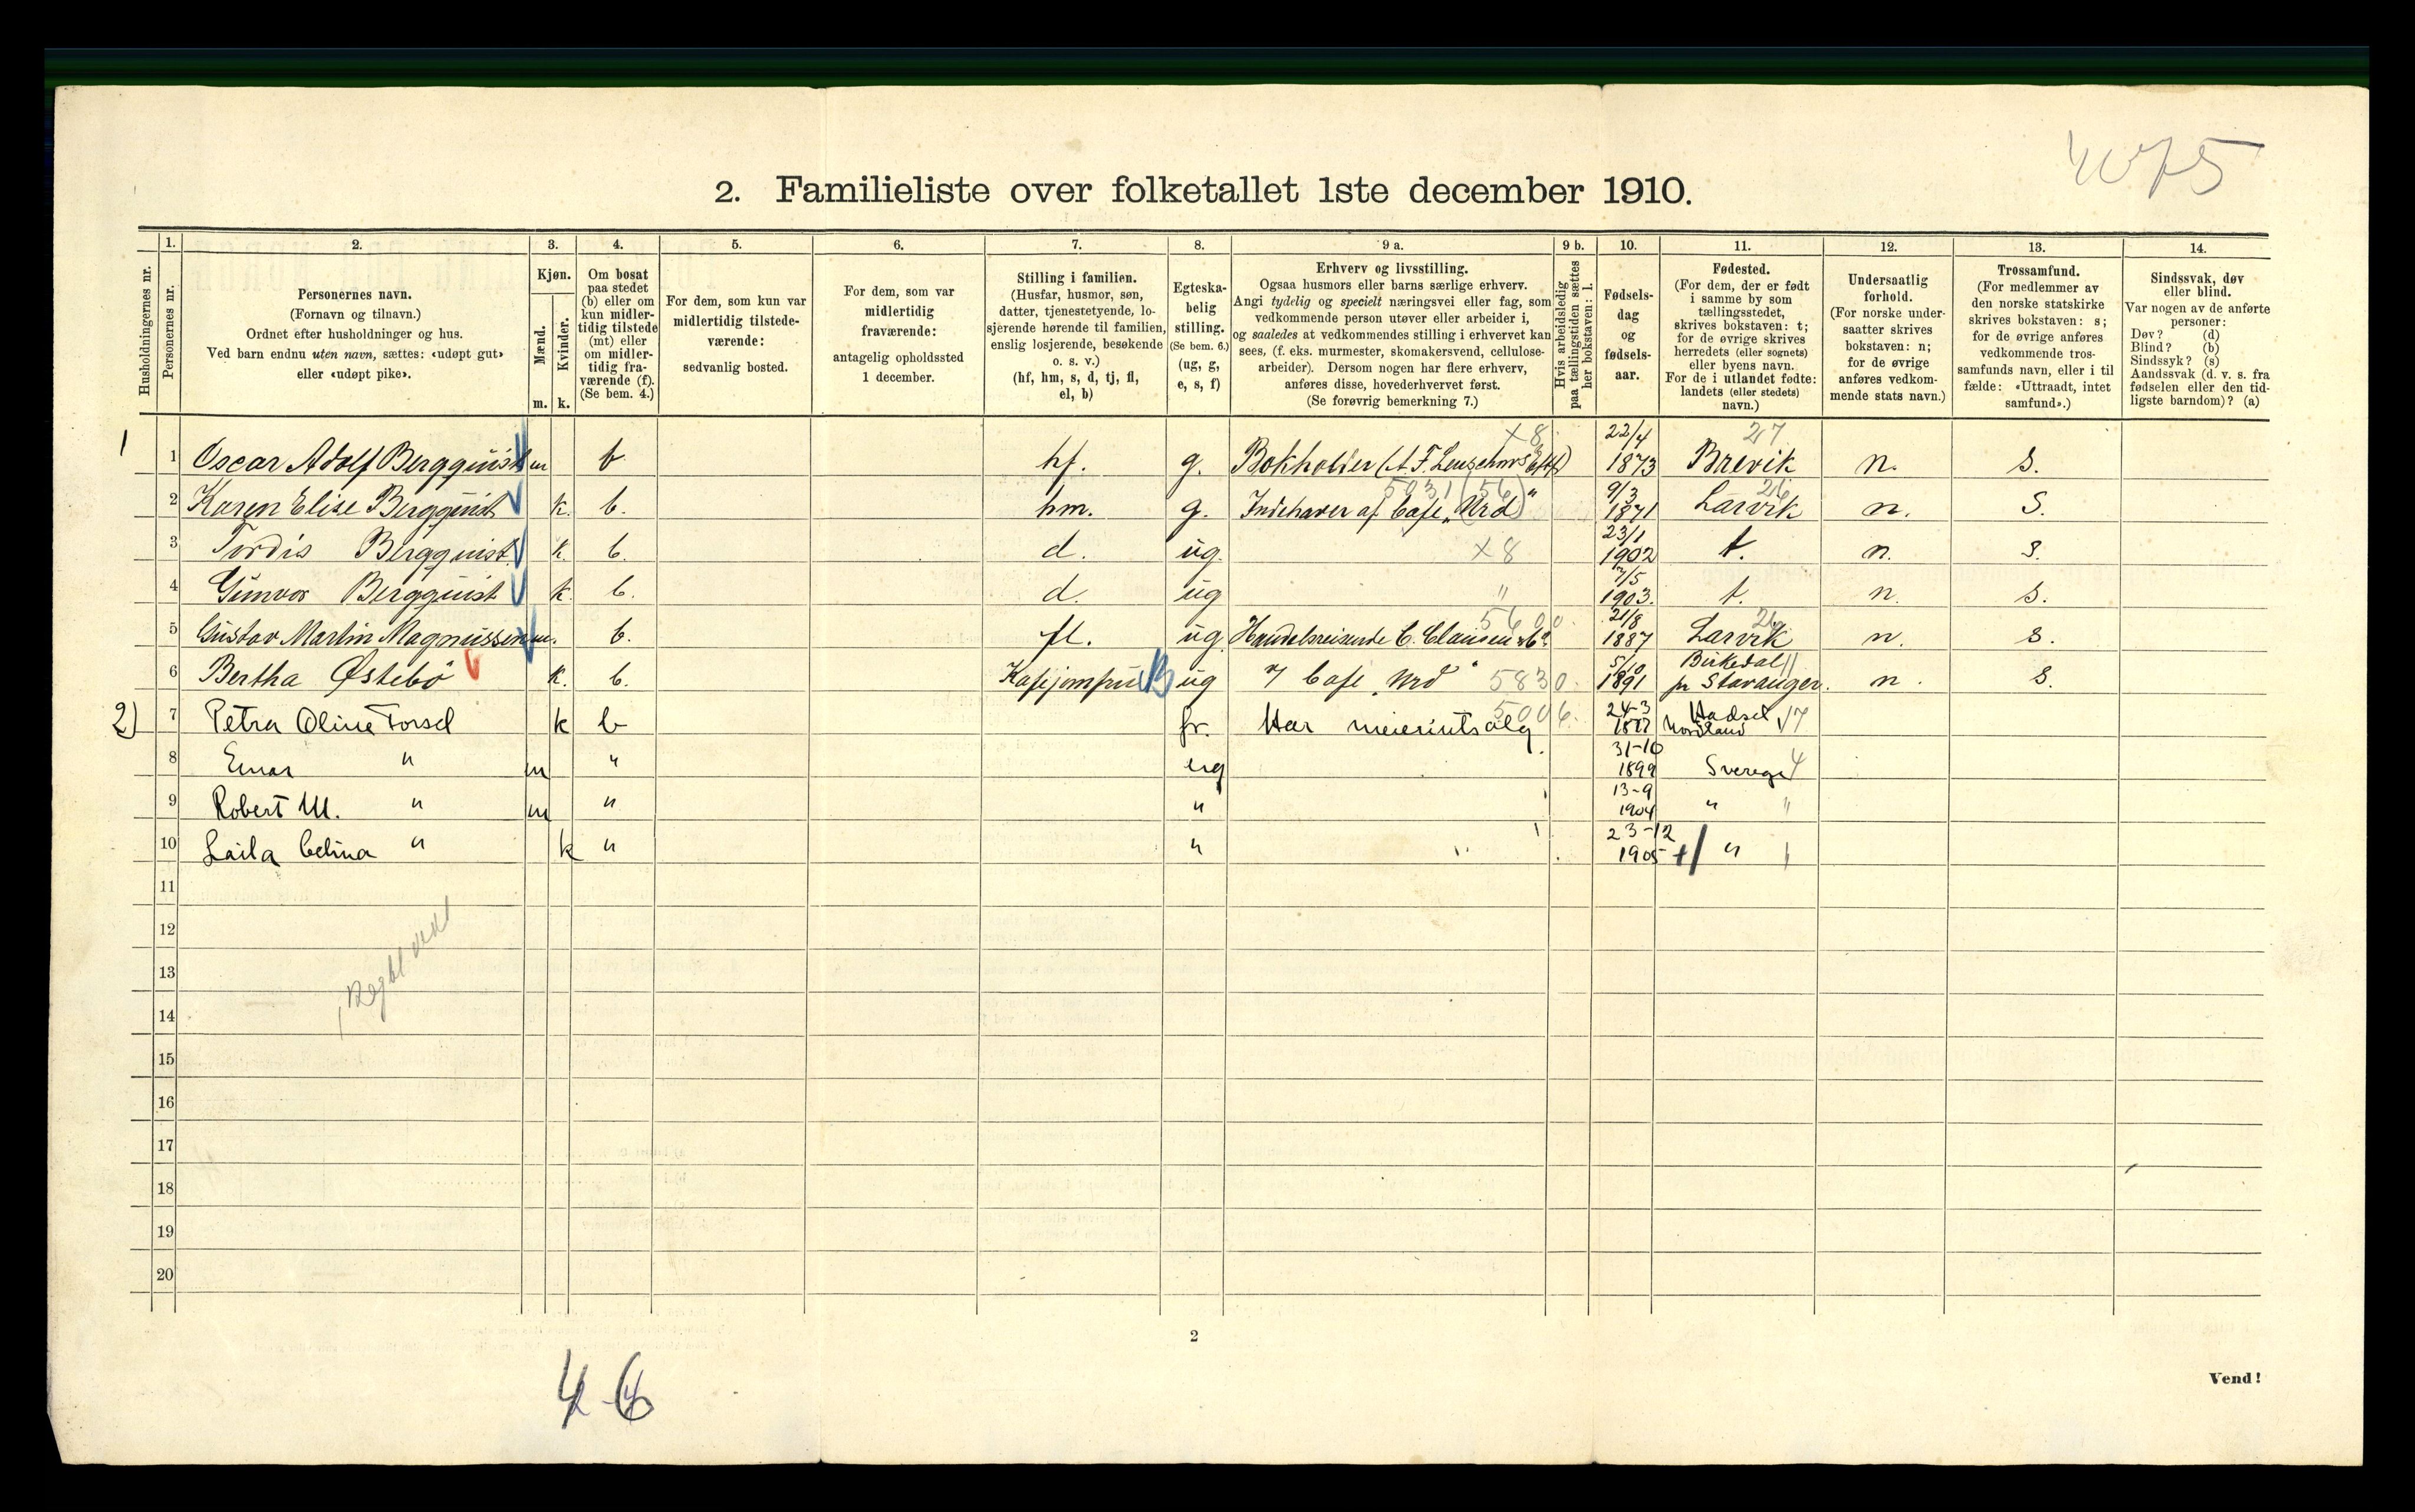 4075
2. Familieliste over folketallet 1ste december 1910.
Husholdningernes nr.
1.
Personernes nr.
2.
Personernes navn.
(Fornavn og tilnavn.)
Ordnet efter husholdninger og hus.
Ved barn endnu uten navn, sættes: «udøpt gut»
eller «udøpt pike».
3.
Kjøn.
Mænd.
Kvinder.
m. k.
4.
Om bosat
paa stedet
(b) eller om
kun midler-
tidig tilstede
(mt) eller
om midler-
tidig fra-
værende (f).
(Se bem. 4.)
5.
For dem, som kun var
midlertidig tilstede-
værende:
sedvanlig bosted.
6.
For dem, som var
midlertidig
fraværende:
antagelig opholdssted
1 december.
7.
Stilling i familien.
(Husfar, husmor, søn,
datter, tjenestetyende, lo-
sjerende hørende til familien,
enslig losjerende, besøkende
o. s. v.)
(hf, hm, s, d, tj, fl,
el, b)
8.
Egteska-
belig
stilling.
(Se bem. 6.)
(ug, g,
e, s, f)
9 a.
Erhverv og livsstilling.
Ogsaa husmors eller barns særlige erhverv.
Angi tydelig og specielt næringsvei eller fag, som
vedkommende person utøver eller arbeider i,
og saaledes at vedkommendes stilling i erhvervet kan
sees, (f. eks. murmester, skomakersvend, cellulose-
arbeider). Dersom nogen har flere erhverv,
anføres disse, hovederhvervet først.
(Se forøvrig bemerkning 7.)
9 b.
Hvis arbeidsledig
paa tællingstiden sættes
her bokstaven: l.
10.
Fødsels-
dag
og
fødsels-
aar.
11.
Fødested.
(For dem, der er født
i samme by som
tællingsstedet,
skrives bokstaven: t;
for de øvrige skrives
herredets (eller sognets)
eller byens navn.
For de i utlandet fødte:
landets (eller stedets)
navn.)
12.
Undersaatlig
forhold.
(For norske under-
saatter skrives
bokstaven: n;
for de øvrige
anføres vedkom-
mende stats navn.)
13.
Trossamfund.
(For medlemmer av
den norske statskirke
skrives bokstaven: s;
for de øvrige anføres
vedkommende tros-
samfunds navn, eller i til
fælde: «Uttraadt, intet
samfund».)
14.
Sindssvak, døv
eller blind.
Var nogen av de anførte
personer:
Døv? (d)
Blind? (b)
Sindssyk? (s)
Aandssvak (d. v. s. fra
fødselen eller den tid-
ligste barndom)? (a)
1 1 Oscar Adolf Bergquist m b hf. g. Bokholder (A. F. Leuschners Eftf) x8 22/4 1873 Brevik 27 n. s.
2 Karen Elise Bergquist k. b. hm. g. Indehaver af Cafe „Urd" 5031 (56) 9/3 1871 Larvik 26 n. S.
3 Tordis Bergquist k. b. d. ug. x 8 23/1 1902 t. n. s.
4 Gunvor Bergquist k. b. d. ug " 7/5 1903. t. n. s.
5 Gustav Martin Magnussen m. b. fl. ug Handelsreisende C. Clausen & Co. 5600. 21/8 1887 Larvik 26 n. s.
6 Bertha Østebö k. b. Kafejomfru B ug i Cafe „Urd" 5830. 5/10 1891 Birkedal 11 pr Stavanger. n. s.
2) 7 Petra Oline Forsel k b fr. Har meieriutsalg. 5006. 24-3 Hadsel, Nordland 17
8 Einar " m " ug 31-10 1899 Sverige 4
9 Robert M. " m " " 13-9 1904 " "
10 Laila Celina " k " " 23-12 1905 + "
11
12
13
14
15
16
17
18
19
20
2
Vend!
4 6